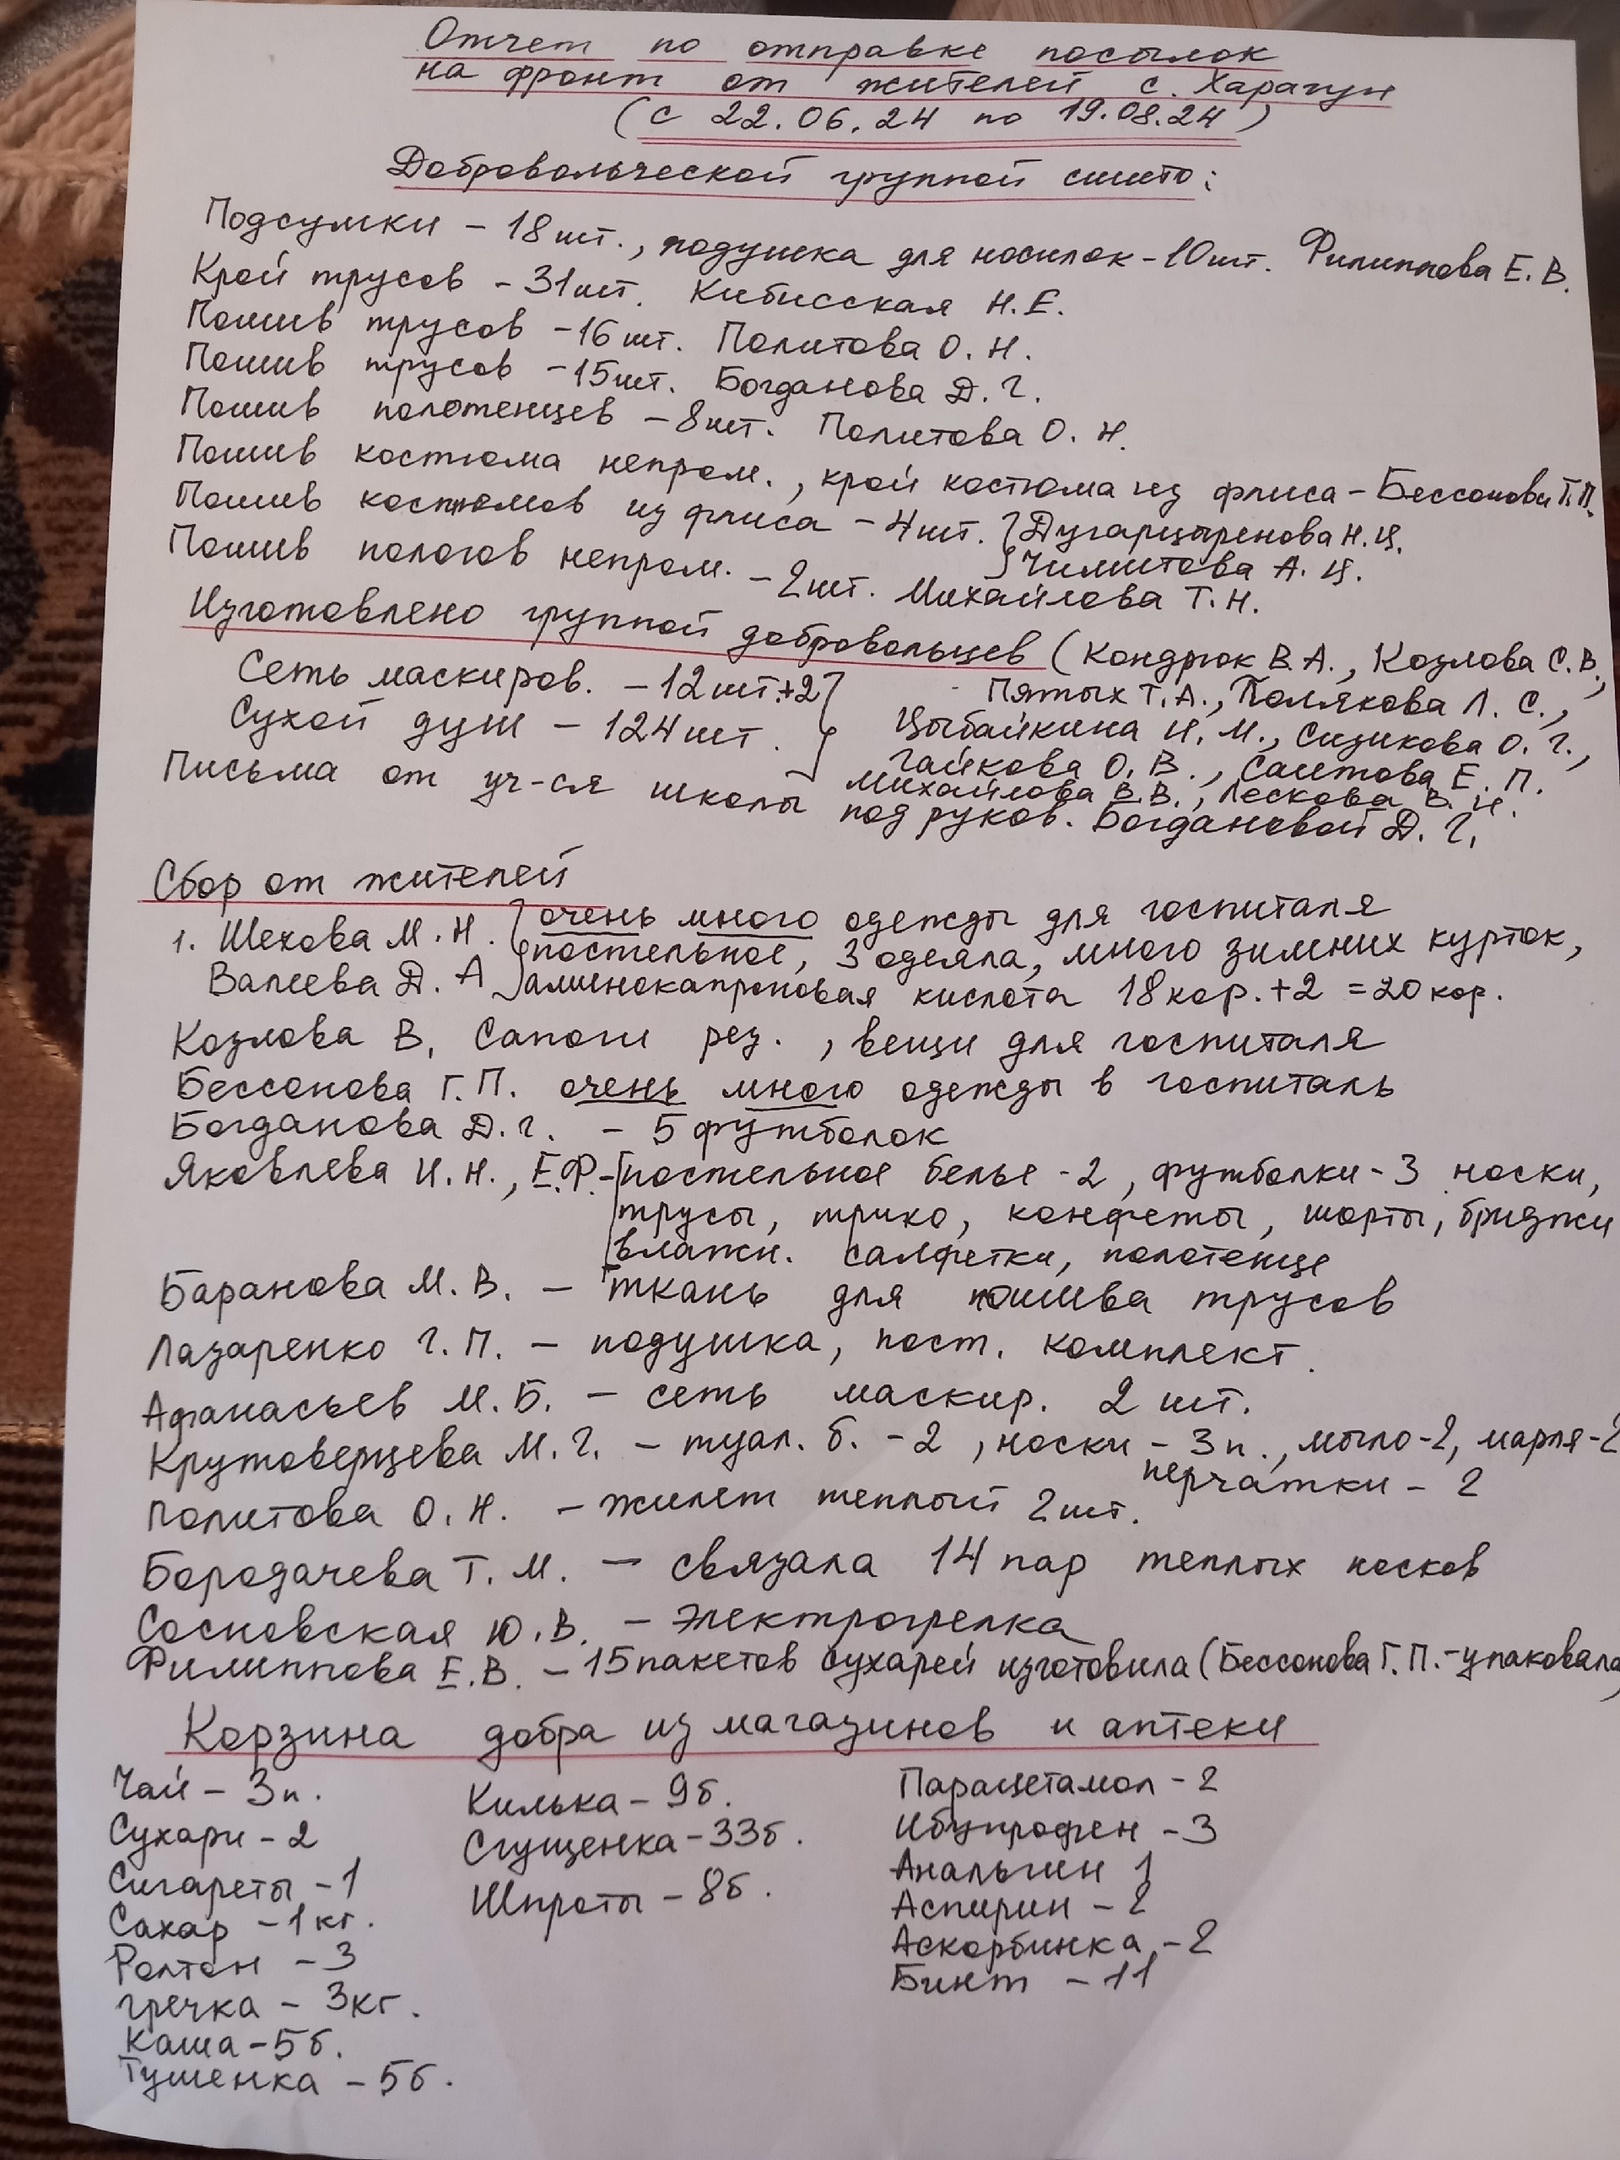 Отчет по отправке посылок
на фронт от жителей с. Харагун
(с 22.06.24 по 19.08.24)
Добровольческой группой сшито:
Подсумки - 18 шт., подушка для носилок - 10 шт. Филиппова Е. В.
Крой трусов - 31 шт. Кибисская Н. Е.
Пошив трусов - 16 шт. Политова О. Н.
Пошив трусов - 15 шт. Богданова Д. Г.
Пошив полотенцев - 8 шт. Политова О. Н.
Пошив костюма непром., крой костюма из флиса - Бессонова Г. П.
Пошив костюмов из флиса - 4 шт. } Дугарцыренова Н. Ц.
Чимитова А. Ц.
Пошив пологов непром. - 2 шт. Михайлова Т. Н.
Изготовлено группой добровольцев (Кондрюк В. А., Козлова С. В.,
Сеть маскиров. - 12 шт. + 2 } Пятых Т. А., Полякова Л. С.,
Сухой душ - 124 шт. Цыбайкина И. М., Сизикова О. Г.,
Гайкова О. В., Саитова Е. П.
Михайлова В. В., Лескова В. И.
Письма от уч-ся школы под руков. Богдановой Д. Г.
Сбор от жителей
1. Шехова М. Н. } очень много одежды для госпиталя
постельное, 3 одеяла, много зимних курток,
Валеева Д. А } аминокапроновая кислота 18 кор. + 2 = 20 кор.
Козлова В. Сапоги рез., вещи для госпиталя
Бессонова Г. П. очень много одежды в госпиталь
Богданова Д. г. - 5 футболок
Яковлева И. Н., Е. Ф. - [постельное белье - 2, футболки - 3 носки,
трусы, трико, конфеты, шорты, бриджи
влажн. салфетки, полотенце
Баранова М. В. - ткань для пошива трусов
Лазаренко Г. П. - подушка, пост. комплект.
Афанасьев М. Б. - сеть маскир. 2 шт.
Крутоверцева М. Г. - туал. б. - 2, носки - 3 п., мыло - 2, марля - 2
перчатки - 2
Политова О. Н. - жилет теплый 2 шт.
Бородачева Т. М. - связала 14 пар теплых носков
Сосновская Ю. В. - электрогрелка
Филиппова Е. В. - 15 пакетов сухарей изготовила (Бессонова Г. П. - упаковала)
Корзина добра из магазинов и аптеки
Чай - 3 п.
Сухари - 2
Сигареты - 1
Сахар - 1 кг.
Ролтон - 3
гречка - 3 кг.
Каша - 5 б.
Тушенка - 5 б.
Килька - 9 б.
Сгущенка - 33 б.
Шпроты - 8 б.
Парацетамол - 2
Ибупрофен - 3
Анальгин 1
Аспирин - 2
Аскорбинка - 2
Бинт - 11